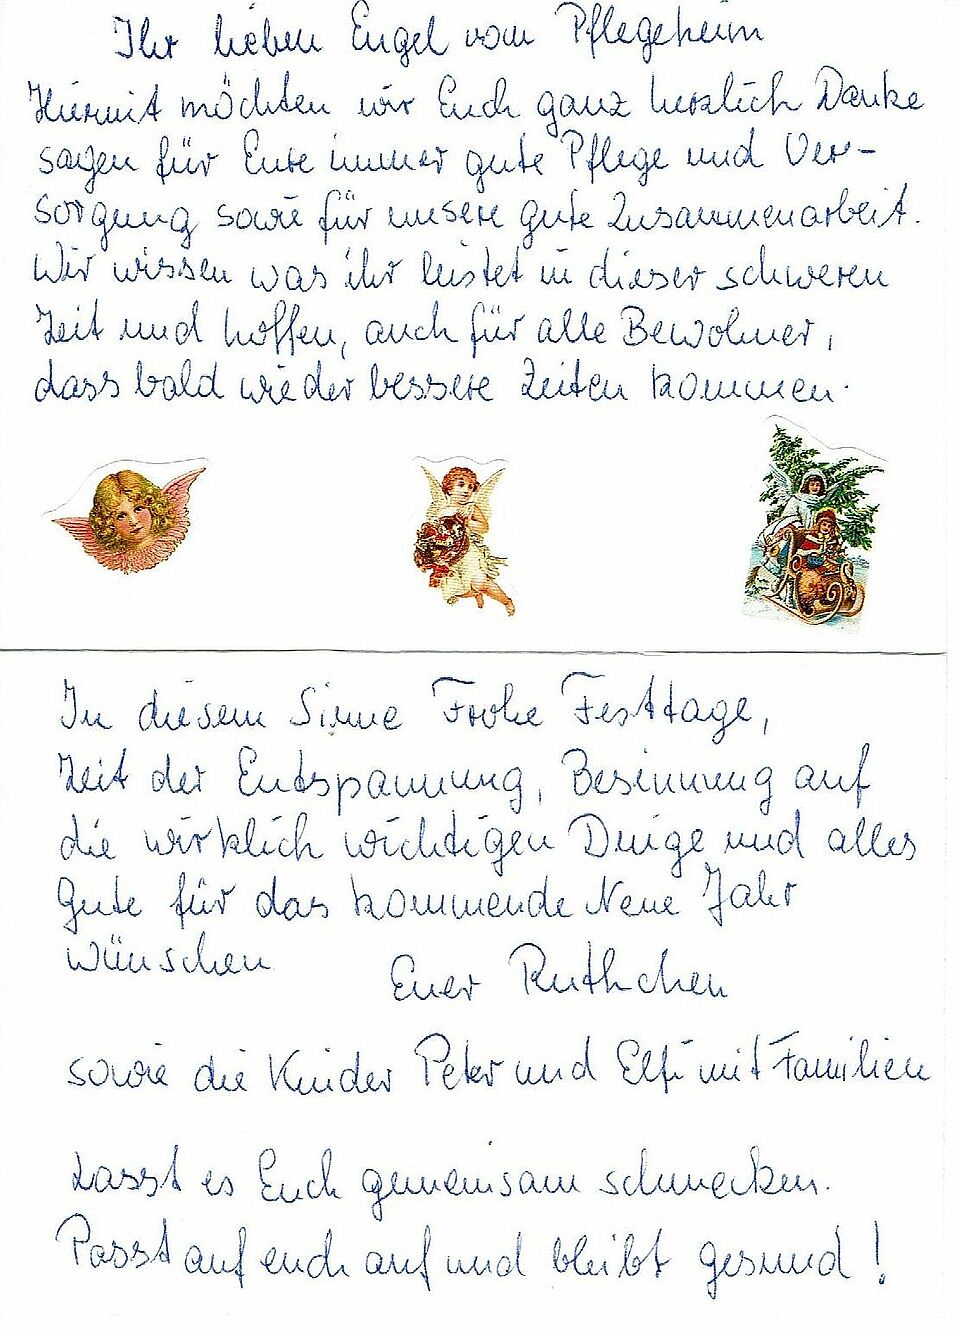 Ihr lieben Engel vom Pflegeheim
Hiermit möchten wir Euch ganz herzlich Danke
sagen für Eure immer gute Pflege und Ver-
sorgung sowie für unsere gute Zusammenarbeit.
Wir wissen was ihr leistet in dieser schweren
Zeit und hoffen, auch für alle Bewohner,
dass bald wieder bessere Zeiten kommen.
In diesem Sinne Frohe Festtage,
Zeit der Entspannung, Besinnung auf
die wirklich wichtigen Dinge und alles
Gute für das kommende Neue Jahr
wünschen
Euer Ruthchen
sowie die Kinder Peter und Elfi mit Familien
Lasst es Euch gemeinsam schmecken.
Passt auf euch auf und bleibt gesund!